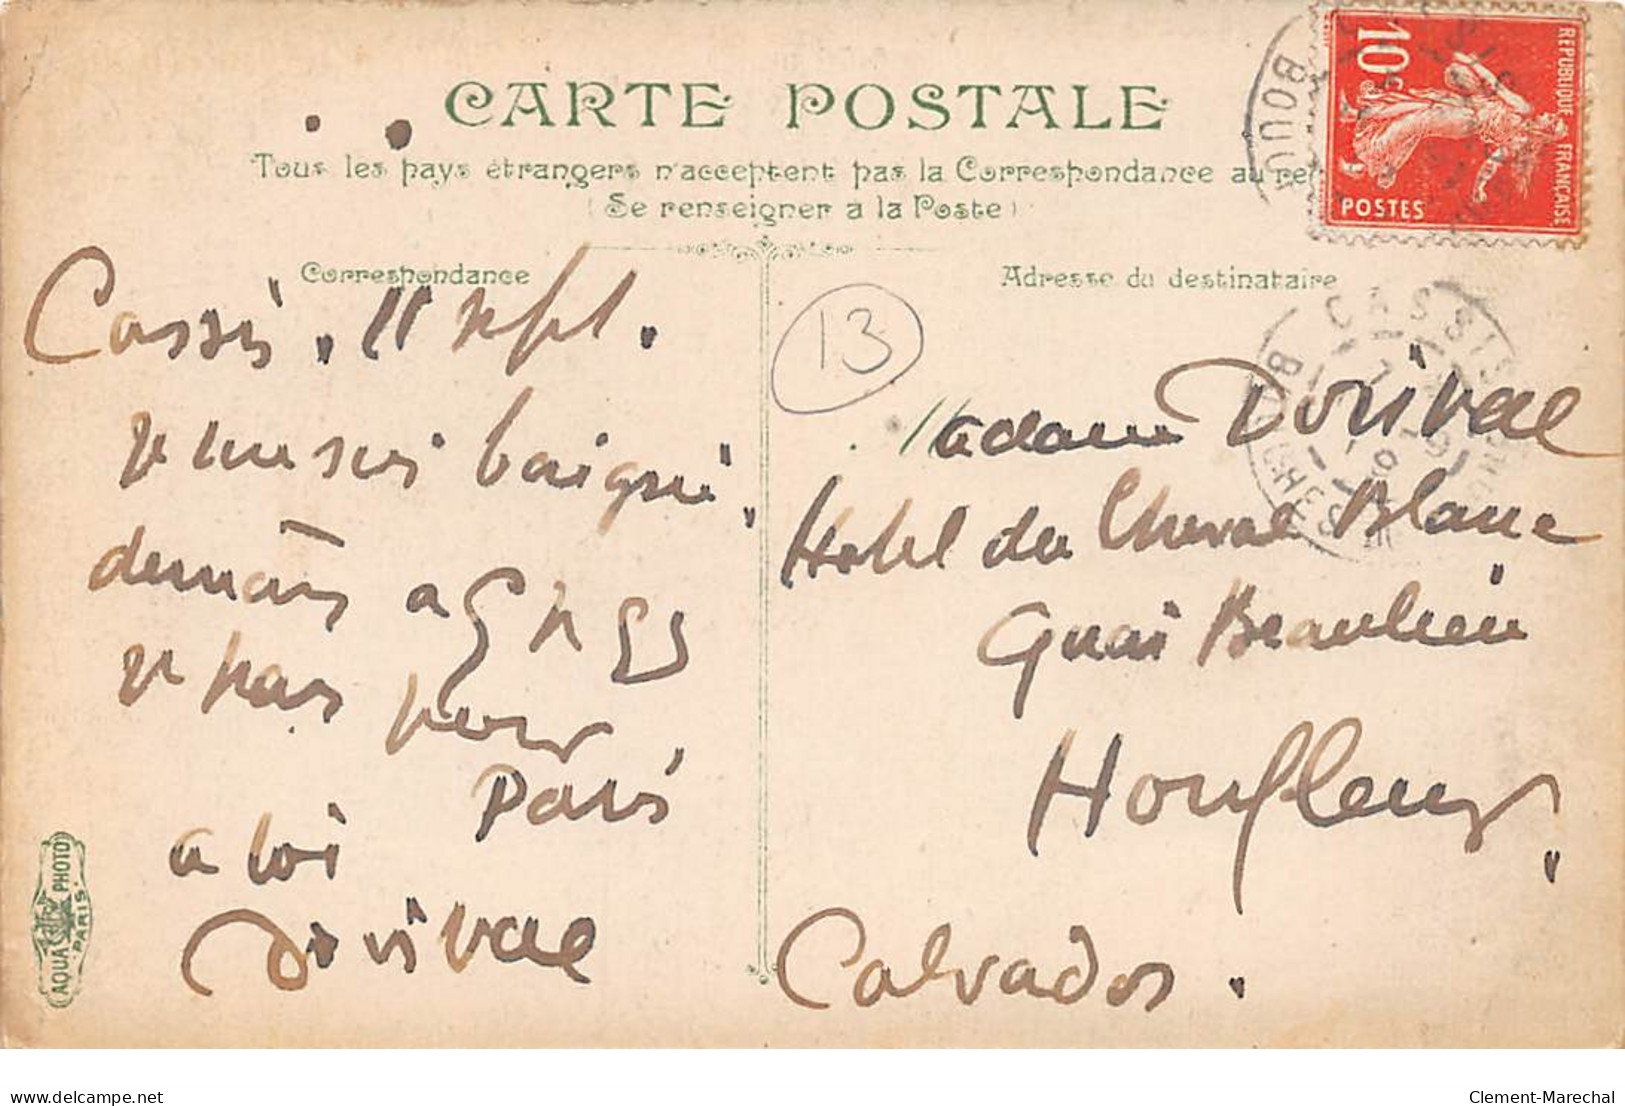 CARTE POSTALE
Tous les pays étrangers n'acceptent pas la Correspondance au re
(Se renseigner à la Poste)
Correspondance
Adresse du destinataire
Cassis. 11 sept.
je me suis baigné.
demain a
je pars pour
Paris
a toi
Dorival
13
Madame Dorival
Hotel du Cheval Blanc
Quai Beaulieu
Honfleur
Calvados.
10c
REPUBLIQUE FRANÇAISE
POSTES
CASSIS
BOUCHES
AQUA PHOTO
PARIS
delcampe.net
Clement-Marechal